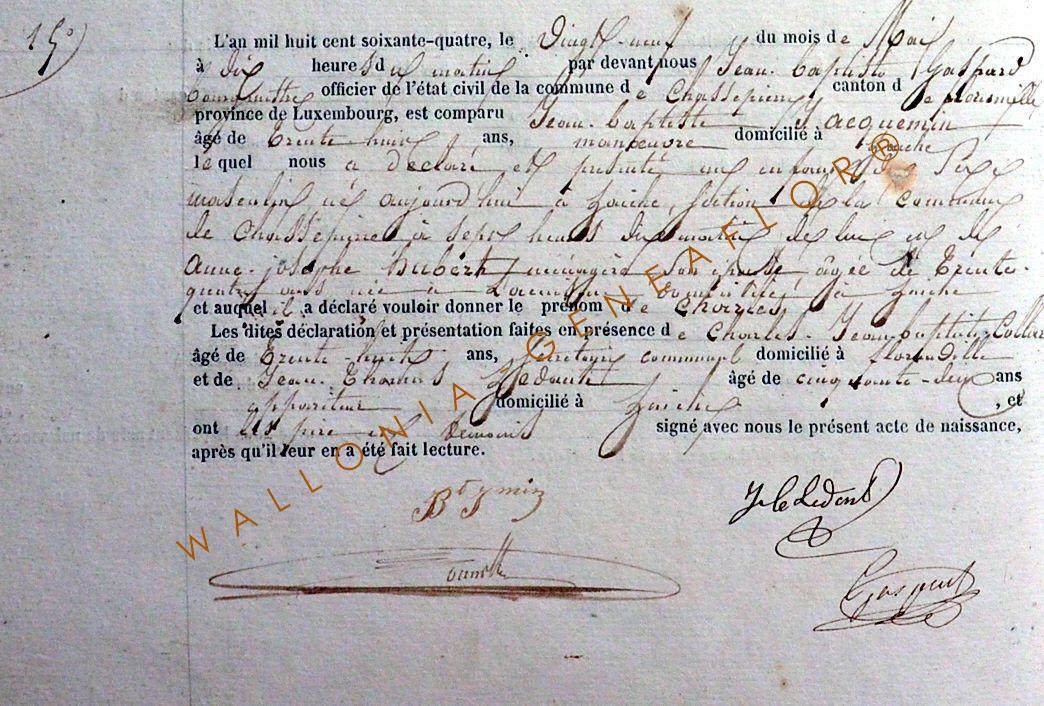 15°)
L'an mil huit cent soixante-quatre, le Vingt-neuf du mois de Mai
à dix heures du matin par devant nous Jean-Baptiste Gaspard
bourgmestre officier de l'état civil de la commune de Chassepierre canton de florenville
province de Luxembourg, est comparu Jean-Baptiste Jacquemin
âgé de trente huit ans, manoeuvre domicilié à
lequel nous a déclaré et présenté un enfant du sexe
masculin né aujourd'hui à laiche, section de la commune
de Chassepierre à sept heures du matin de lui et de
Anne-Josephe Hubert ménagère son épouse âgée de trente-
quatre ans née à domiciliée à laiche
et auquel il a déclaré vouloir donner le prénom de Charles
Les dites déclaration et présentation faites en présence de Charles Jean-baptiste
âgé de trente-huit ans, secrétaire communal domicilié à florenville
et de Jean Thomas Ledent âgé de cinquante-deux ans
appariteur domicilié à laiche, et
ont les père et témoins signé avec nous le présent acte de naissance,
après qu'il leur en a été fait lecture.
Gaspard
WALLONIA GENEAFLOR©